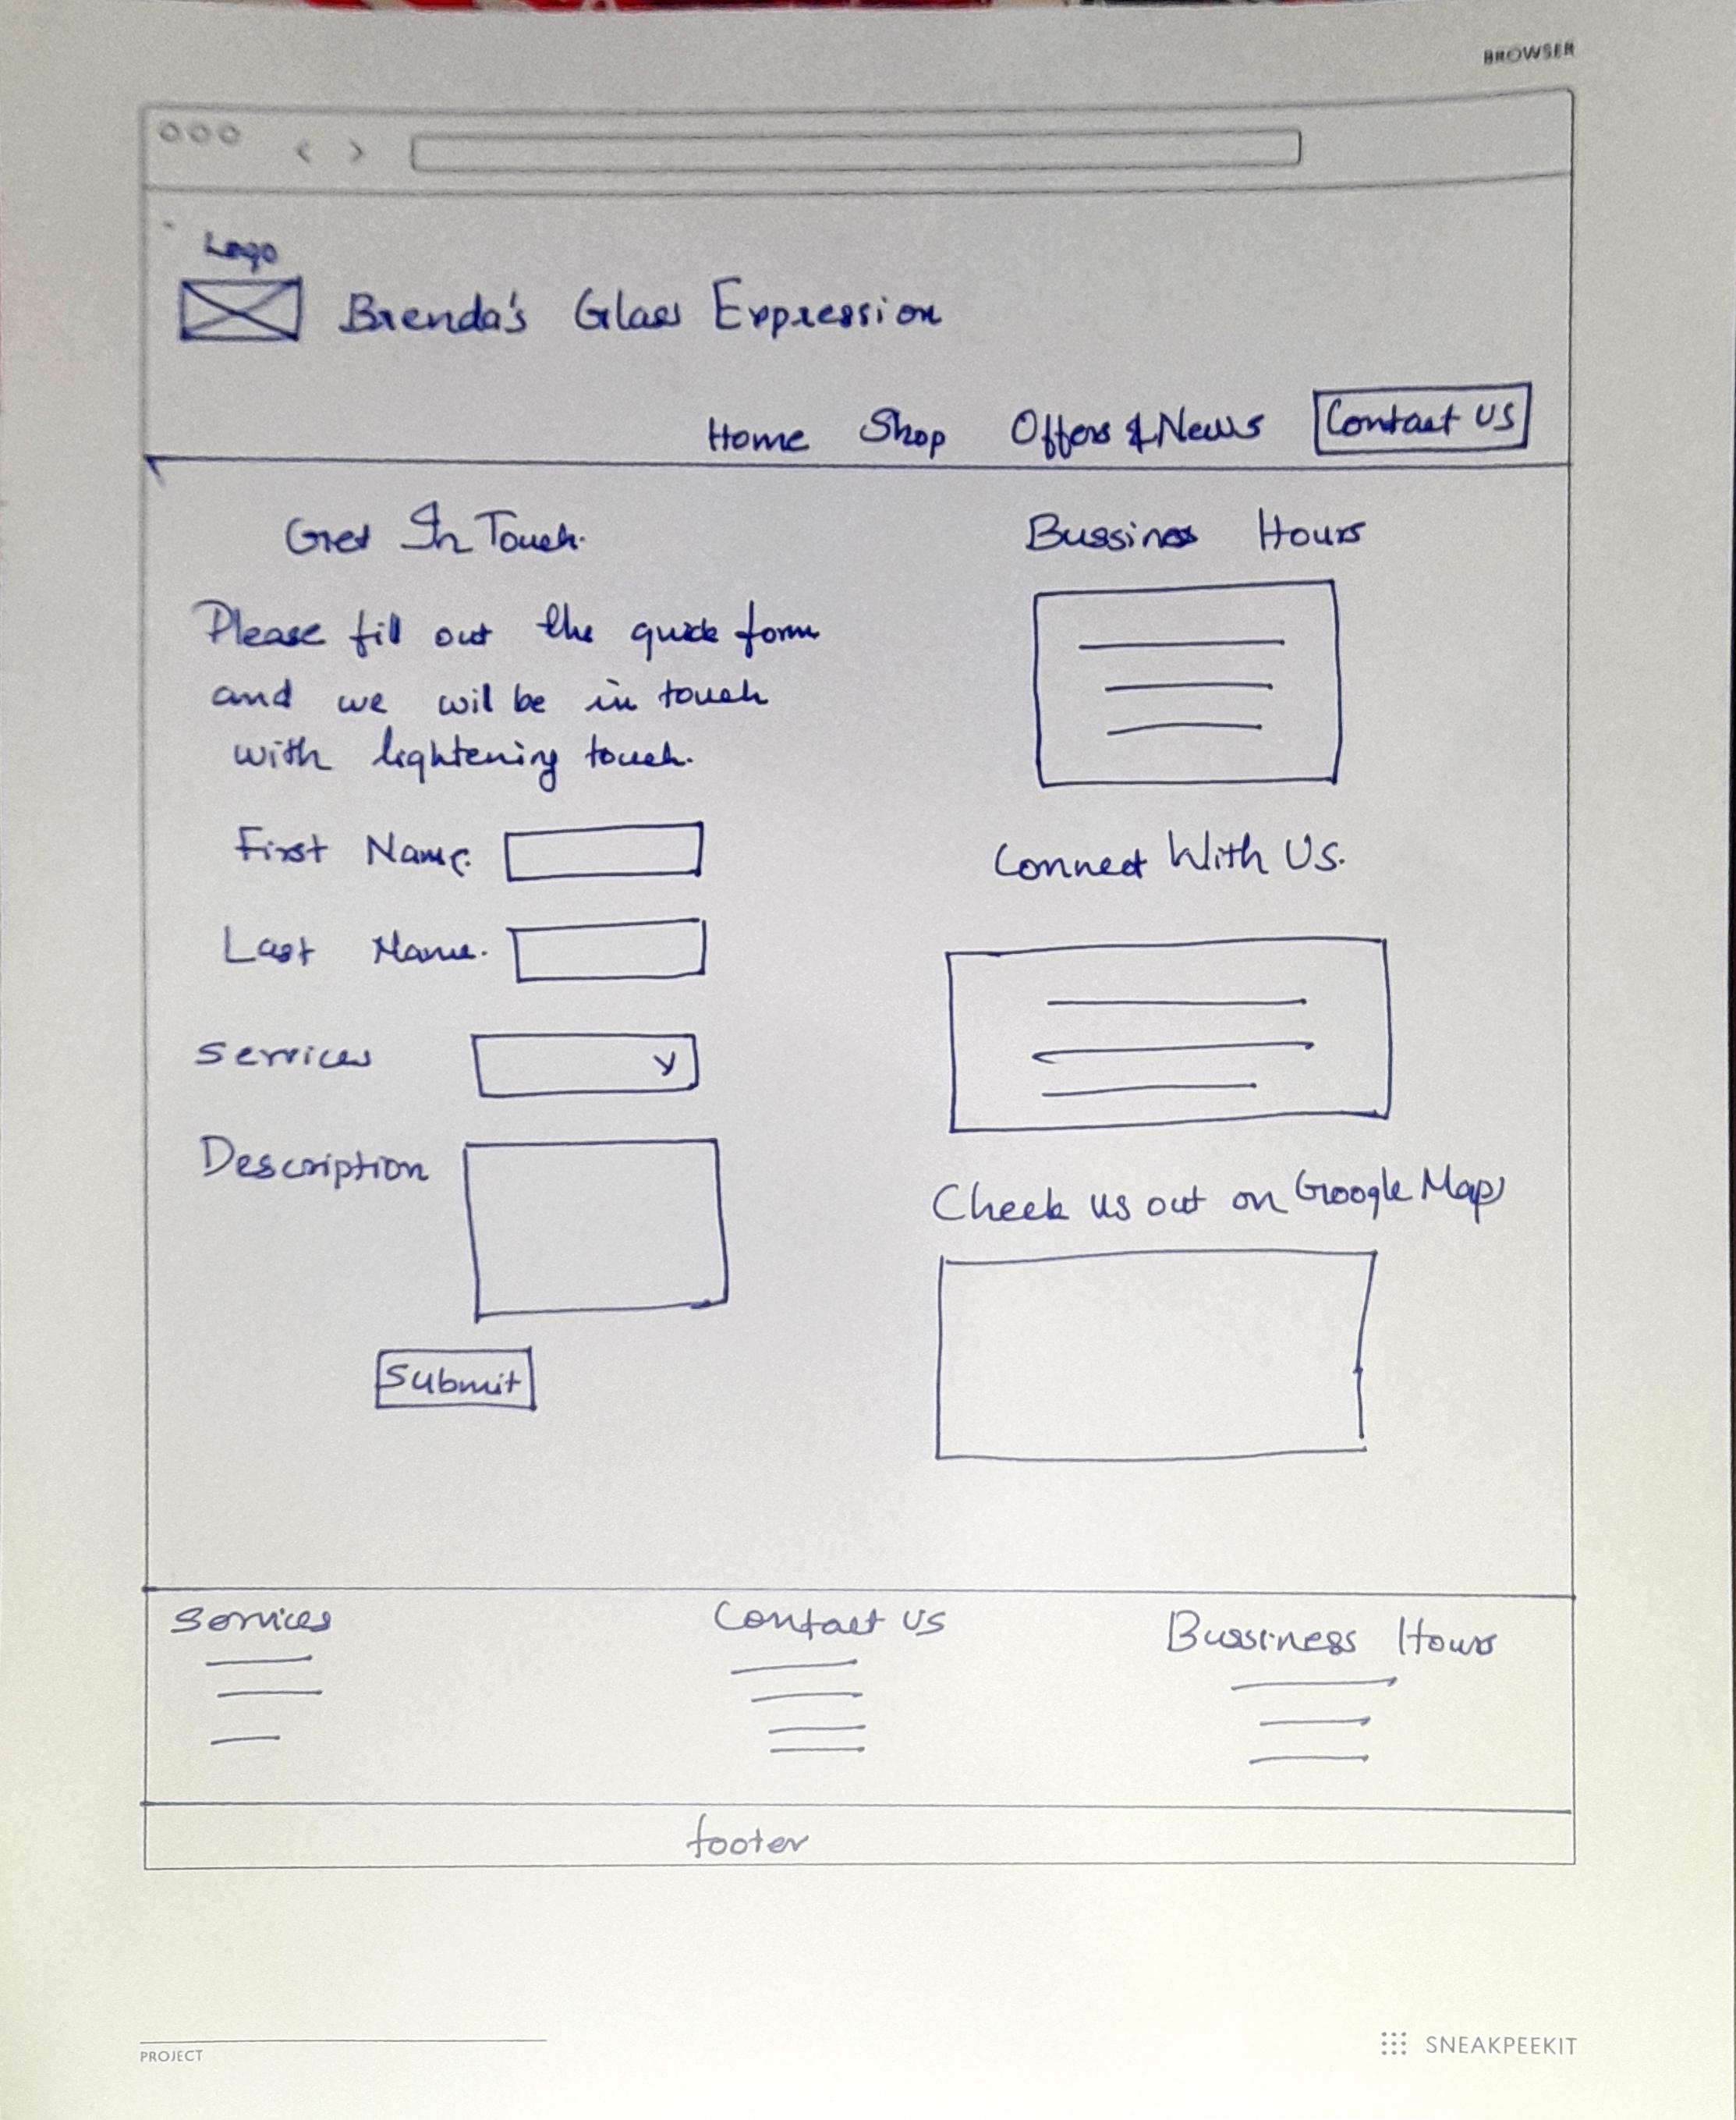 BROWSER
Logo
Brenda's Glass Expression
Home Shop Offers & News Contact US
Get In Touch.
Please fill out the quick form
and we wil be in touch
with lightening touch.
First Name.
Last Name.
Services
Description
Submit
Bussiness Hours
Connect With Us.
Check us out on Google Maps
Services
Contact US
Bussiness Hours
footer
PROJECT
SNEAKPEEKIT